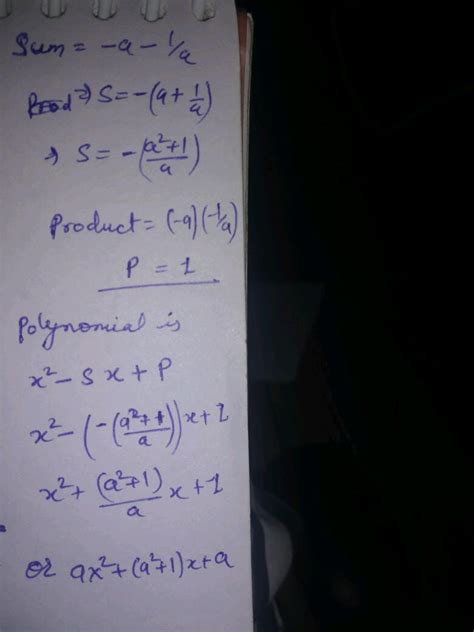 Sum = -a - 1/a
⇒ S = -(a + 1/a)
⇒ S = -(a²+1/a)
Product = (-a)(-1/a)
P = 1
Polynomial is
x² - S x + P
x² - (-(a²+1/a))x+1
x² + (a²+1)/a x+1
or ax²+(a²+1)x+a